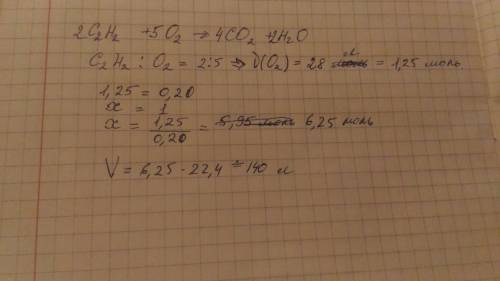 2C₂H₂ + 5O₂ → 4CO₂ + 2H₂O
C₂H₂ : O₂ = 2:5 ⇒ V(O₂) = 28 л = 1,25 моль
1,25 = 0,20
x = 1
x = 1,25/0,20 = 5,95 моль 6,25 моль
V = 6,25 · 22,4 = 140 л